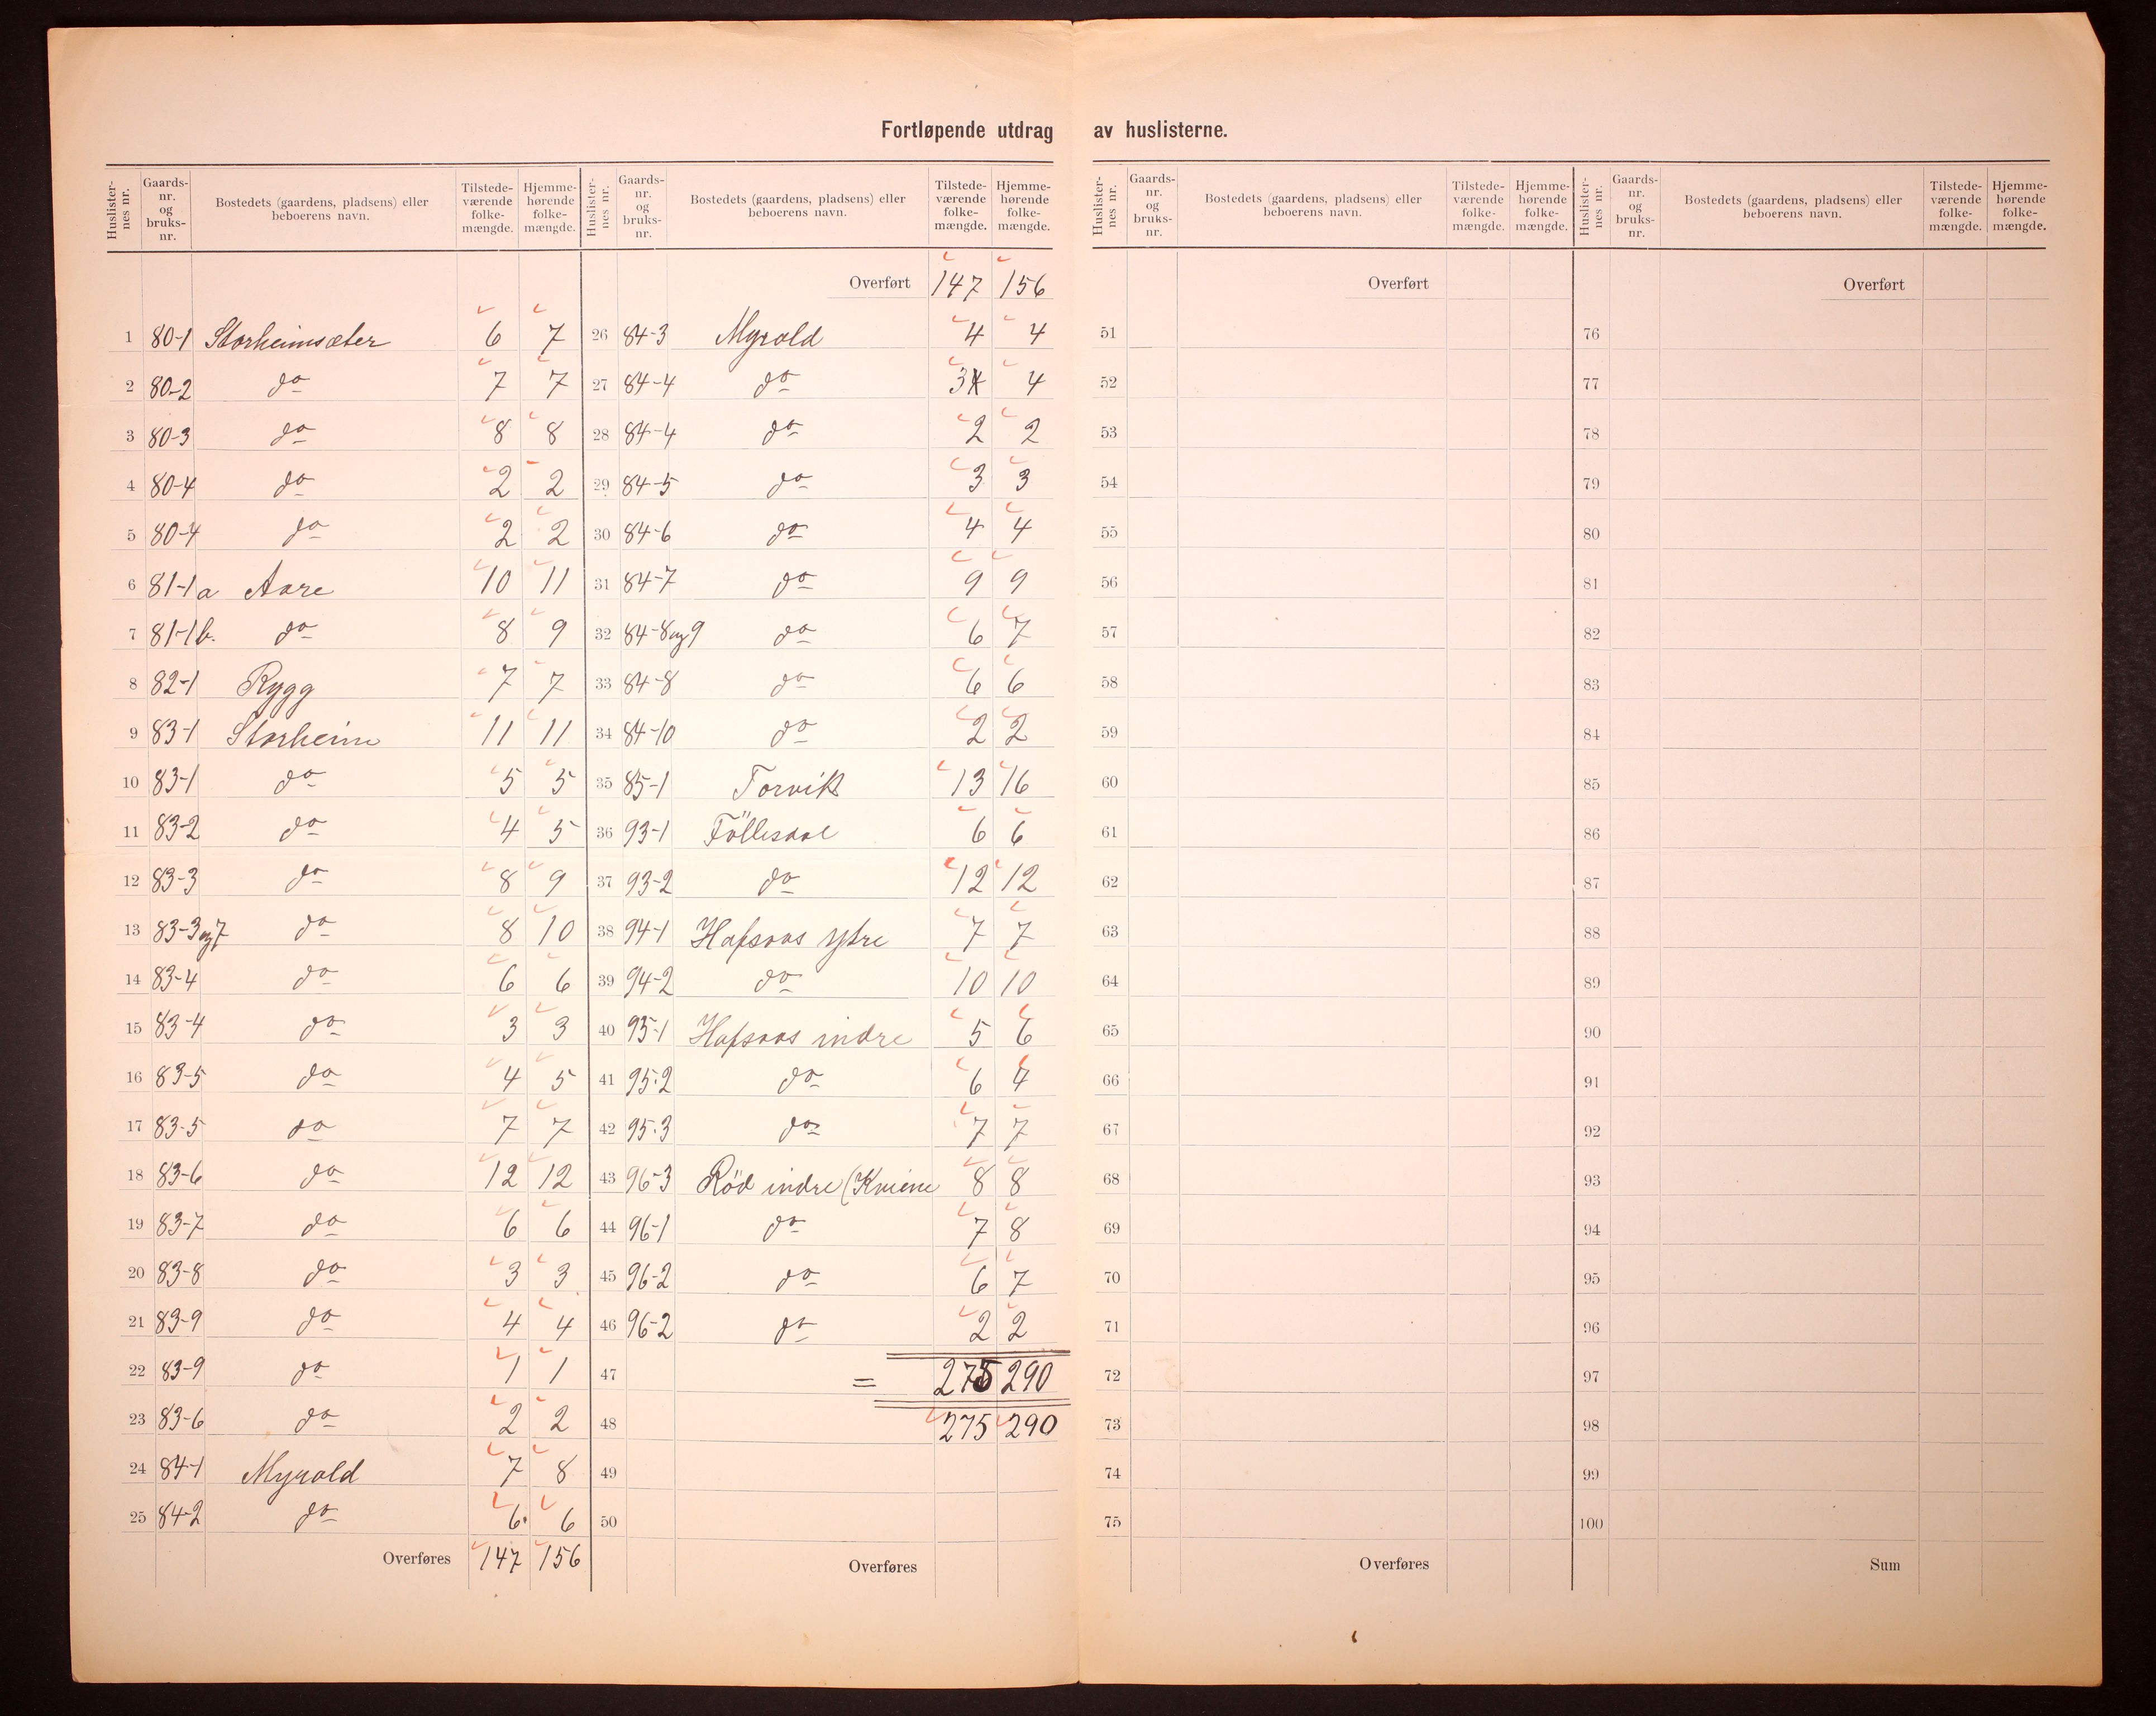 Fortløpende utdrag av huslisterne.
Huslisternes nr. Gaardsnr. og bruksnr. Bostedets (gaardens, pladsens) eller beboerens navn. Tilstedeværende folkemængde. Hjemmehørende folkemængde.
1 80-1 Storheimsæter 6 7
2 80-2 do 7 7
3 80-3 do 8 8
4 80-4 do 2 2
5 80-4 do 2 2
6 81-1a Aare 10 11
7 81-1b. do 8 9
8 82-1 Rygg 7 7
9 83-1 Storheim 11 11
10 83-1 do 5 5
11 83-2 do 4 5
12 83-3 do 8 9
13 83-3 og 7 do 8 10
14 83-4 do 6 6
15 83-4 do 3 3
16 83-5 do 4 5
17 83-5 do 7 7
18 83-6 do 12 12
19 83-7 do 6 6
20 83-8 do 3 3
21 83-9 do 4 4
22 83-9 do 1 1
23 83-6 do 2 2
24 84-1 Myrold 7 8
25 84-2 do 6 6
Overføres 147 156
Huslisternes nr. Gaardsnr. og bruksnr. Bostedets (gaardens, pladsens) eller beboerens navn. Tilstedeværende folkemængde. Hjemmehørende folkemængde.
Overført 147 156
26 84-3 Myrold 4 4
27 84-4 do 3 4
28 84-4 do 2 2
29 84-5 do 3 3
30 84-6 do 4 4
31 84-7 do 9 9
32 84-8 og 9 do 6 7
33 84-8 do 6 6
34 84-10 do 2 2
35 85-1 Torvik 13 16
36 93-1 Föllesdal 6 6
37 93-2 do 12 12
38 94-1 Hafsaas ytre 7 7
39 94-2 do 10 10
40 95-1 Hafsaas indre 5 6
41 95.2 do 6 4
42 95.3 do 7 7
43 96-3 Röd indre (Kviene 8 8
44 96-1 do 7 8
45 96-2 do 6 7
46 96-2 do 2 2
47 = 275 290
48 275 290
49
50
Overføres
Huslisternes nr. Gaardsnr. og bruksnr. Bostedets (gaardens, pladsens) eller beboerens navn. Tilstedeværende folkemængde. Hjemmehørende folkemængde.
Overført
51
52
53
54
55
56
57
58
59
60
61
62
63
64
65
66
67
68
69
70
71
72
73
74
75
Overføres
Huslisternes nr. Gaardsnr. og bruksnr. Bostedets (gaardens, pladsens) eller beboerens navn. Tilstedeværende folkemængde. Hjemmehørende folkemængde.
Overført
76
77
78
79
80
81
82
83
84
85
86
87
88
89
90
91
92
93
94
95
96
97
98
99
100
Sum